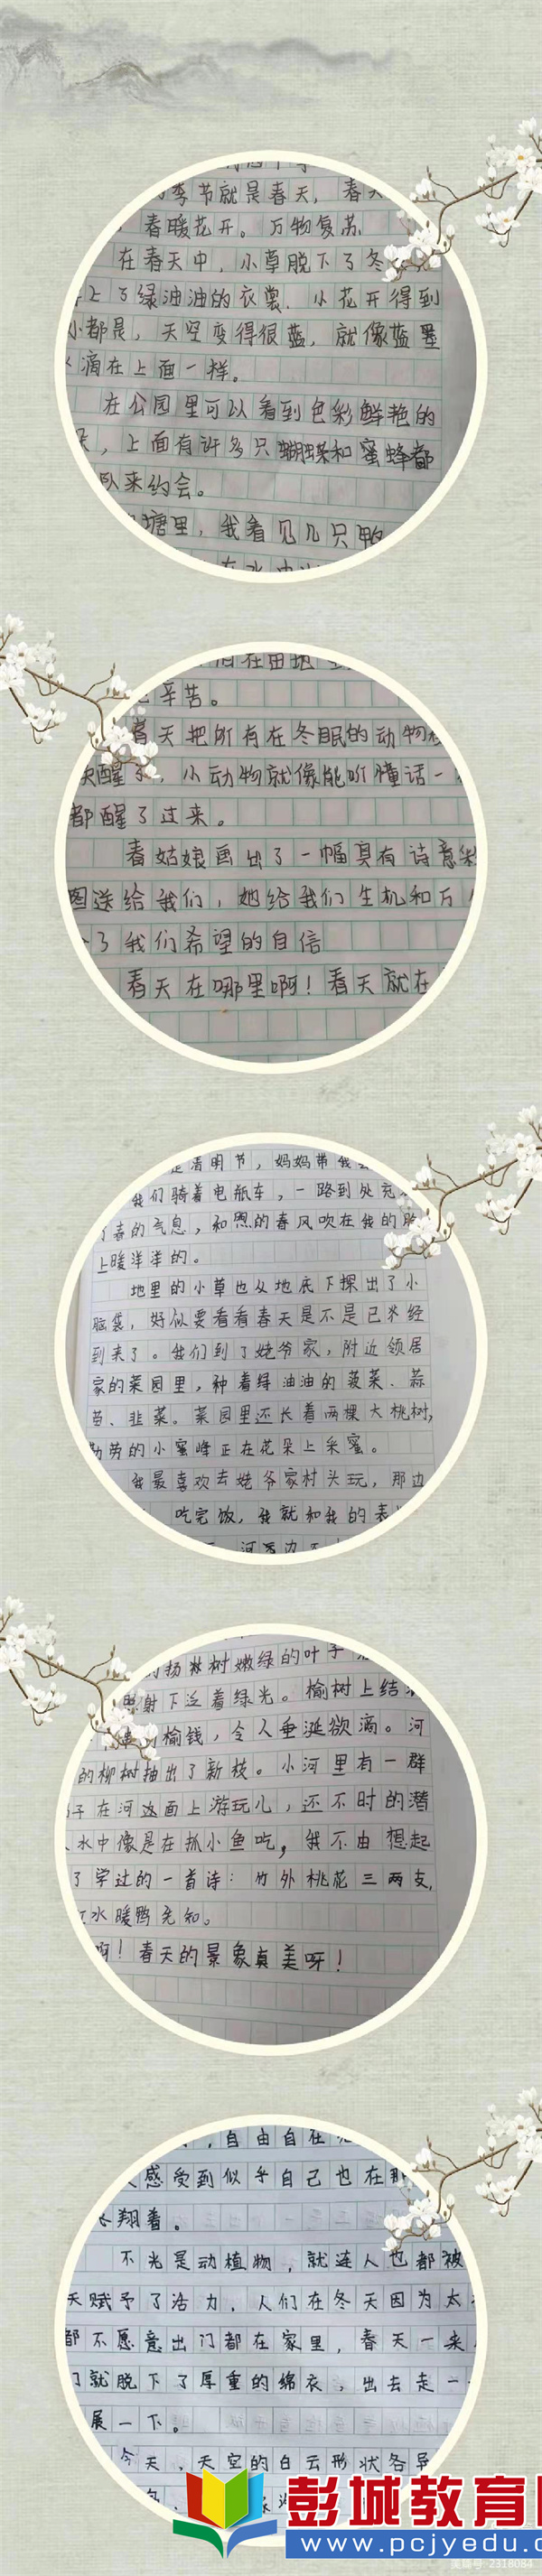 季节就是春天，春天
春暖花开。万物复苏
在春天中，小草脱下了冬
上了绿油油的衣裳，小花开得到
都是，天空变得很蓝，就像蓝墨
滴在上面一样。
在公园里可以看到色彩鲜艳的
，上面有许多只蝴蝶和蜜蜂都
队来约会。
塘里，我看见几只鸭
在田地
辛苦。
春天把所有在冬眠的动物
醒了，小动物就像能听懂话一
都醒了过来。
春姑娘画出了一幅具有诗意
图送给我们，她给我们生机和万
了我们希望的自信
春天在哪里啊！春天就在
是清明节，妈妈带我
我们骑着电瓶车，一路到处充
了春的气息，和煦的春风吹在我的脸
上暖洋洋的。
地里的小草也从地底下探出了小
脑袋，好似要看看春天是不是已经
到来了。我们到了姥爷家，附近领居
家的菜园里，种着绿油油的菠菜、蒜
苗、韭菜。菜园里还长着两棵大桃树，
勤劳的小蜜峰正在花朵上采蜜。
我最喜欢去姥爷家村头玩，那边
吃完饭，我就和我的表
的扬林树嫩绿的叶子
照射下泛着绿光。榆树上结
榆钱，令人垂涎欲滴。河
的柳树抽出了新枝。小河里有一群
子在河边面上游玩儿，还不时的潜
水中像是在抓小鱼吃，我不由想起
了学过的一首诗：竹外桃花三两支，
江水暖鸭先知。
啊！春天的景象真美呀！
，自由自在
感受到似乎自己也在那
翔着。
不光是动植物，就连人也都被
天赋予了活力，人们在冬天因为太
都不愿意出门都在家里，春天一来
们就脱下了厚重的绵衣，出去走一
展一下。
今天，天空的白云形状各异
彭城教育
www.pcjyedu.c
美篇号：2318084